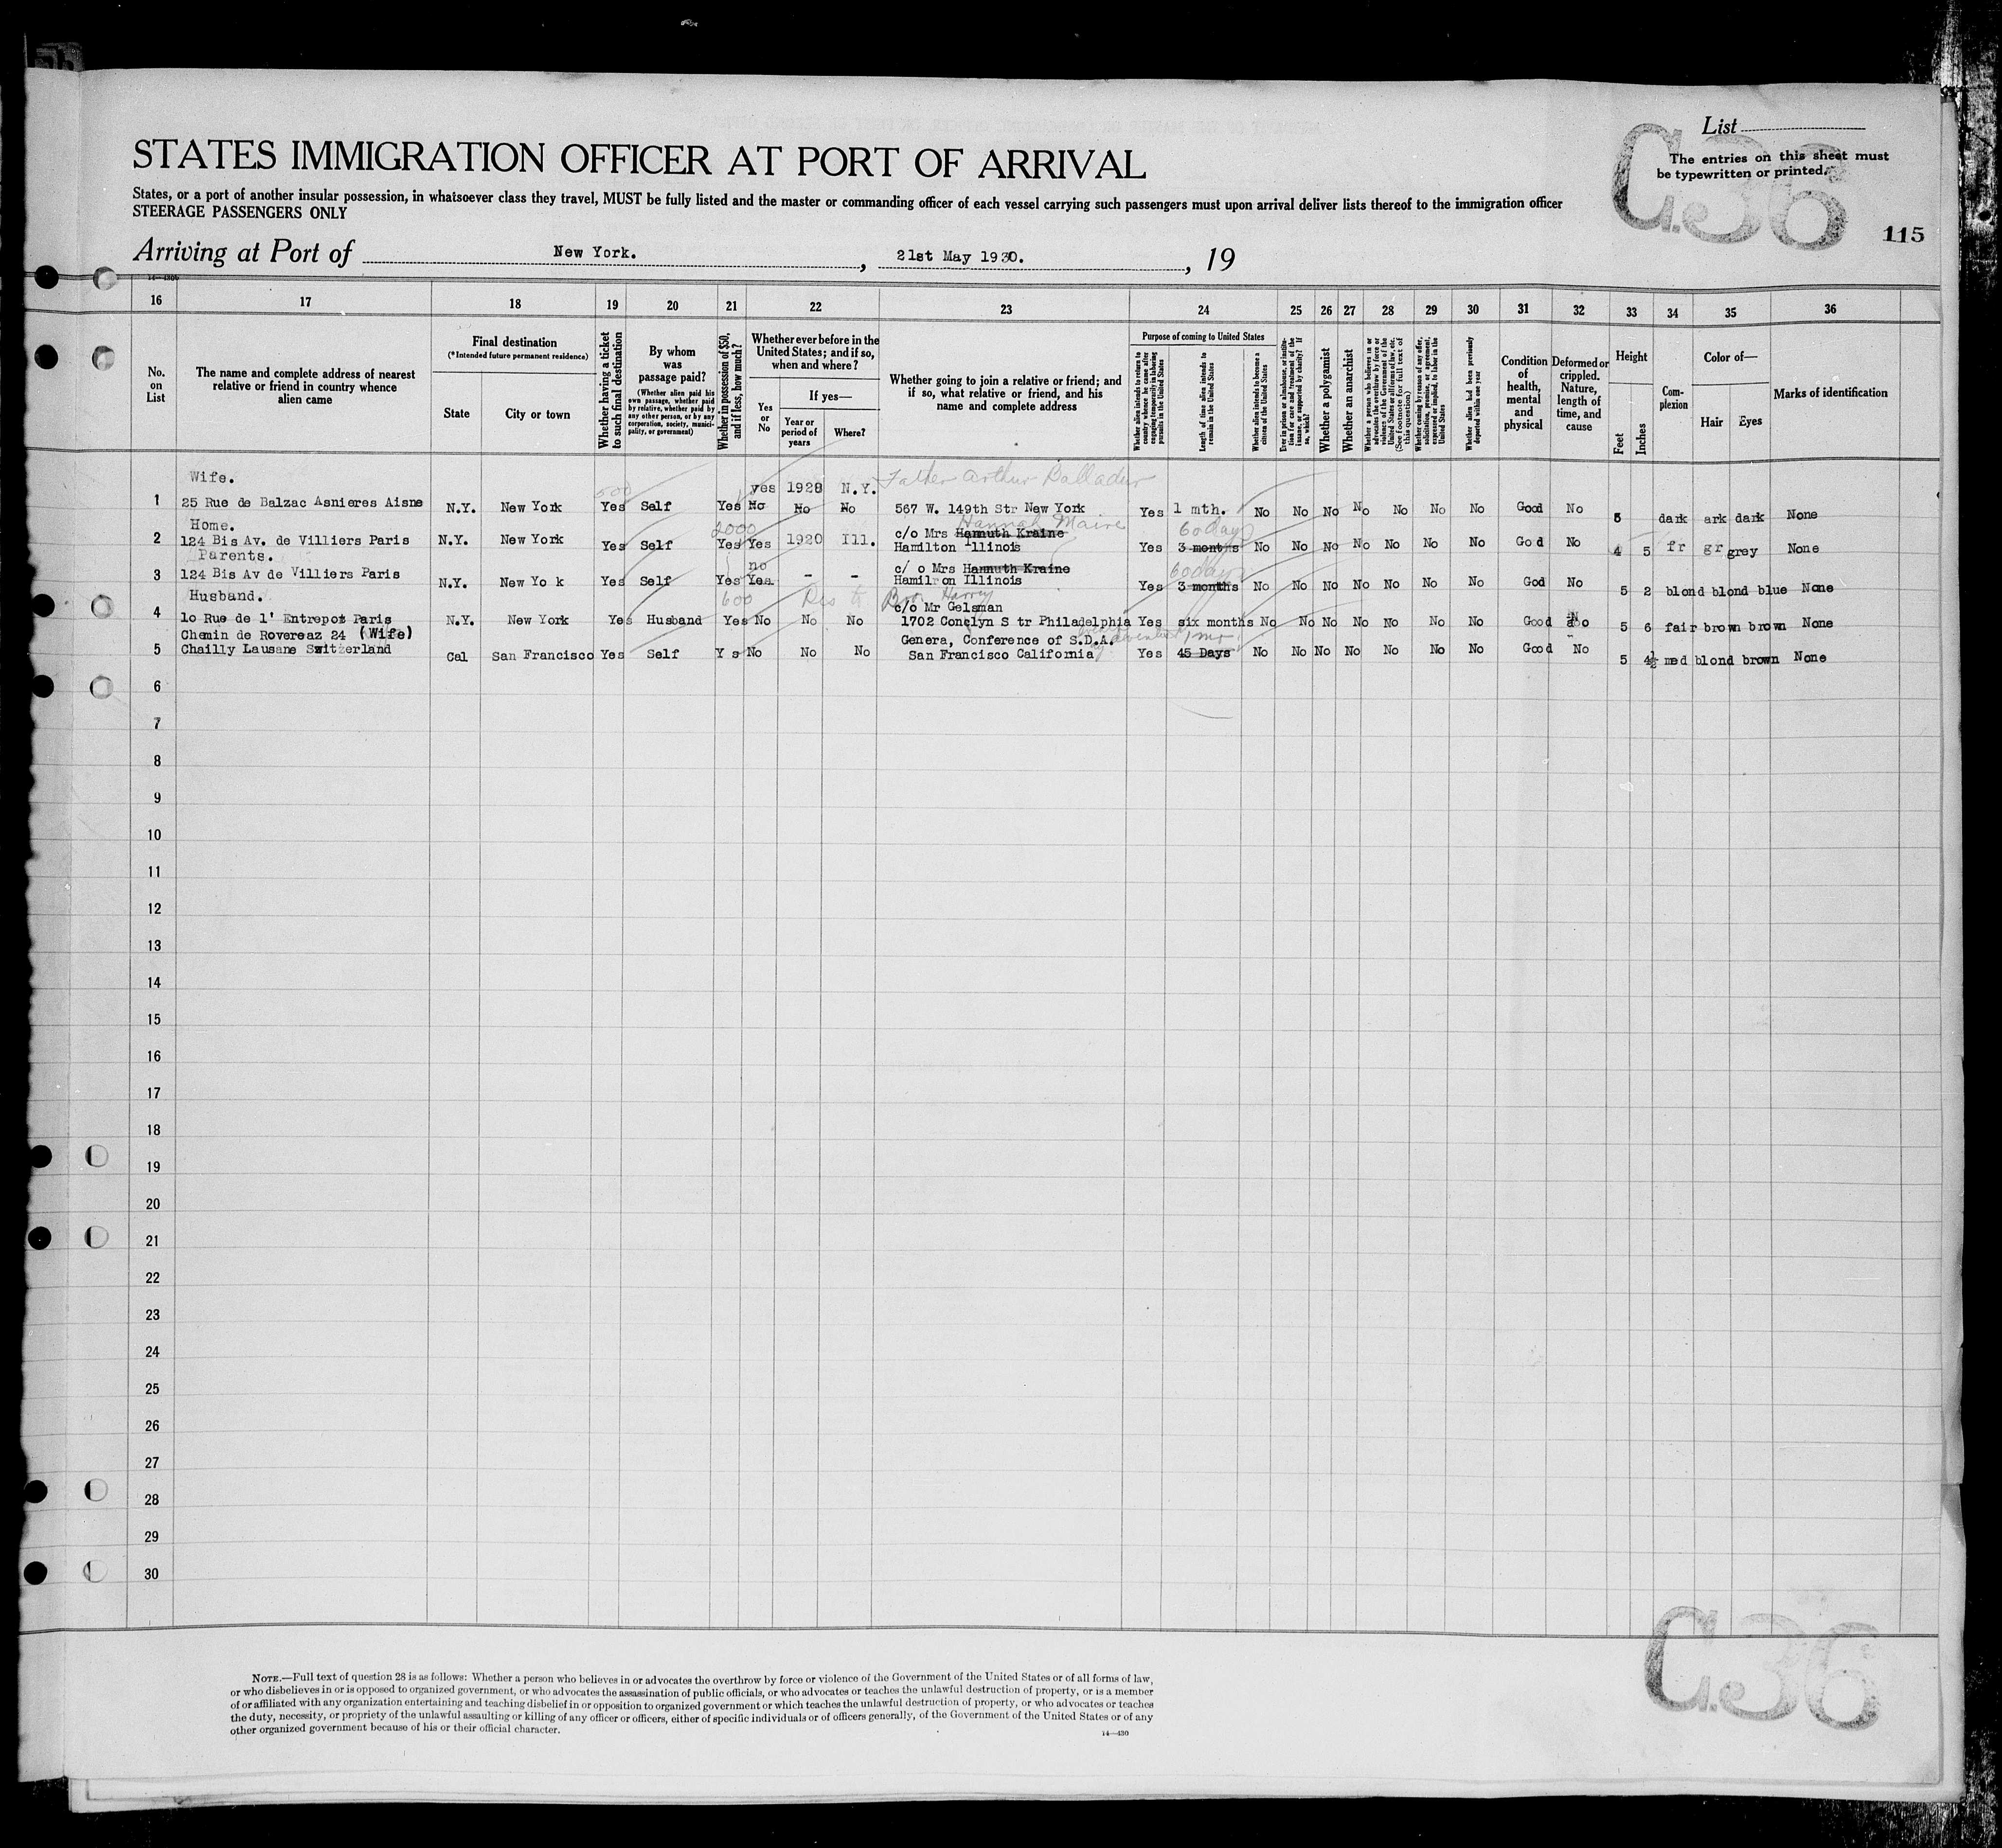 List
STATES IMMIGRATION OFFICER AT PORT OF ARRIVAL
The entries on this sheet must
be typewritten or printed.
C.36
115
States, or a port of another insular possession, in whatsoever class they travel, MUST be fully listed and the master or commanding officer of each vessel carrying such passengers must upon arrival deliver lists thereof to the immigration officer
STEERAGE PASSENGERS ONLY
Arriving at Port of New York. , 21st May 1930. , 19
14—430
16 17 18 19 20 21 22 23 24 25 26 27 28 29 30 31 32 33 34 35 36
No. on List
The name and complete address of nearest relative or friend in country whence alien came
Final destination
(*Intended future permanent residence)
State
City or town
Whether having a ticket to such final destination
By whom was passage paid?
(Whether alien paid his own passage, whether paid by relative, whether paid by any other person, or by any corporation, society, municipality, or government)
Whether in possession of $50, and if less, how much?
Whether ever before in the United States; and if so, when and where?
Yes or No
If yes—
Year or period of years
Where?
Whether going to join a relative or friend; and if so, what relative or friend, and his name and complete address
Purpose of coming to United States
Whether alien intends to return to country whence he came after engaging temporarily in laboring pursuits in the United States
Length of time alien intends to remain in the United States
Whether alien intends to become a citizen of the United States
Ever in prison or almshouse, or institution for care and treatment of the insane, or supported by charity? If so, which?
Whether a polygamist
Whether an anarchist
Whether a person who believes in or advocates the overthrow by force or violence of the Government of the United States or all forms of law, etc. (See footnote for full text of this question)
Whether coming by reason of any offer, solicitation, promise, or agreement, expressed or implied, to labor in the United States
Whether alien had been previously deported within one year
Condition of health, mental and physical
Deformed or crippled. Nature, length of time, and cause
Height
Feet
Inches
Complexion
Color of—
Hair
Eyes
Marks of identification
Wife. 500 yes 1928 N.Y. Father Arthur Balladur
1 25 Rue de Balzac Asnieres Aisne N.Y. New York Yes Self Yes No No No 567 W. 149th Str New York Yes 1 mth. No No No No No No No Good No 5 dark ark dark None
Home. 2000 c/o Mrs Hannuth Kraine Hannah Maire 60 days
2 124 Bis Av. de Villiers Paris N.Y. New York Yes Self Yes Yes 1920 Ill. Hamilton Illinois Yes 3 months No No No No No No No Go d No 4 5 fr gr grey None
Parents. no c/ o Mrs Hannuth Kraine 60 days
3 124 Bis Av de Villiers Paris N.Y. New Yo k Yes Self Yes Yes - - Hamil on Illinois Yes 3 months No No No No No No No God No 5 2 blond blond blue None
Husband. 600 Bro. Harry c/o Mr Gelsman
4 1o Rue de l' Entrepot Paris N.Y. New York Yes Husband Yes No No No 1702 Conclyn S tr Philadelphia Yes six months No No No No No No No Good No 5 6 fair brown brown None
Chemin de Rovereaz 24 (Wife) Genera, Conference of S.D.A. 1 mo
5 Chailly Lausane Switzerland Cal San Francisco Yes Self Y s No No No San Francisco California Yes 45 Days No No No No No No No Good No 5 4½ med blond brown None
6
7
8
9
10
11
12
13
14
15
16
17
18
19
20
21
22
23
24
25
26
27
28
29
30
NOTE.—Full text of question 28 is as follows: Whether a person who believes in or advocates the overthrow by force or violence of the Government of the United States or of all forms of law,
or who disbelieves in or is opposed to organized government, or who advocates the assassination of public officials, or who advocates or teaches the unlawful destruction of property, or is a member
of or affiliated with any organization entertaining and teaching disbelief in or opposition to organized government or which teaches the unlawful destruction of property, or who advocates or teaches
the duty, necessity, or propriety of the unlawful assaulting or killing of any officer or officers, either of specific individuals or of officers generally, of the Government of the United States or of any
other organized government because of his or their official character.
14—430
C.36